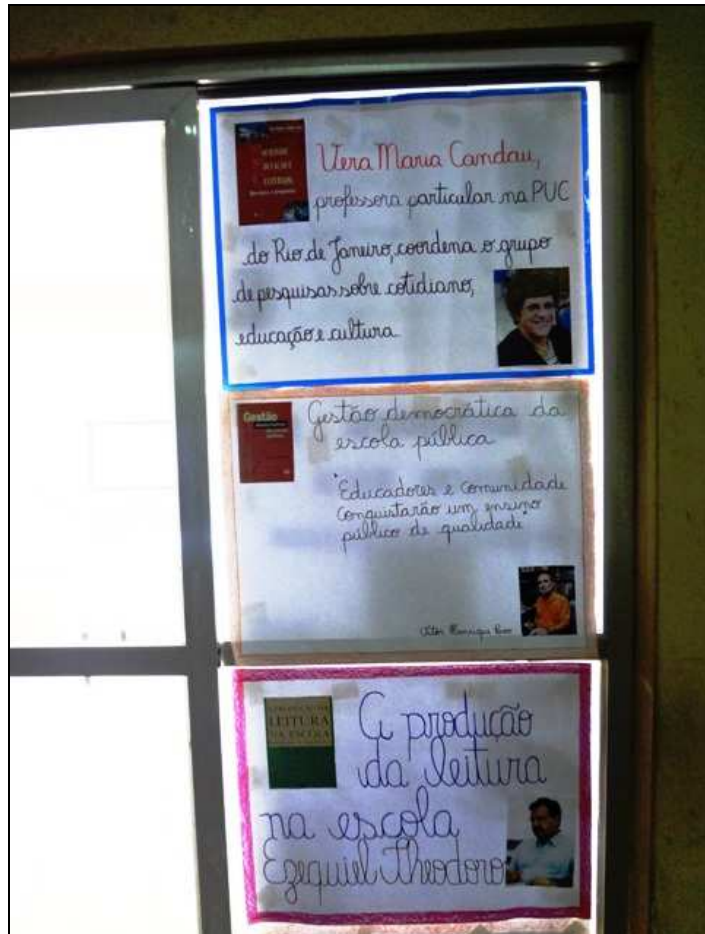 Vera Maria Candau,
professora particular na PUC
do Rio de Janeiro, coordena o grupo
de pesquisas sobre cotidiano,
educação e cultura.
Gestão
Gestão democrática da
escola pública
Educadores e comunidade
conquistarão um ensino
público de qualidade
Vitor Henrique Paro
A PRODUÇÃO DA
LEITURA
NA ESCOLA
A produção
da leitura
na escola
Ezequiel Theodoro